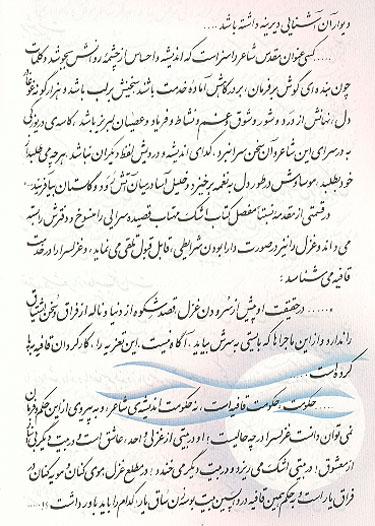 دیوارآن آشنایی دیرینه داشته باشد ....
..... کسی عنوان مقدس شاعر را سزاست که اندیشه و احساس از چشمهٔ روانش بجوشد و کلمات
چون بنده‌ای گوش بر فرمان، بر درگاهش آمادهٔ خدمت باشند سخنش بر لب باشد و هزار گونه غوغا در
دل، نهانش از درد و شور و شوق و غم و نشاط و فریاد و عصیان لبریز باشد، کاسهٔ دریوزگی
به در سرای این شاعر و آن سخن سرا نبرد، گدای اندیشه و دریوزش لفظ دیگران نباشد، هرچه می‌طلبد از
خود بطلبد، موسی‌وش در طور دل به نغمه برخیزد و خلیل آسا در میان آتش گل و گلستان بیافریند.
در قسمتی از مقدمه نسبتاً مفصل کتاب اشک مهتاب قصیده سرایی را منسوخ و دفترش را بسته
می‌داند و غزل را نیز در صورت دارا بودن شرایطی، قابل قبول تلقی می‌نماید، و غزلسرا را در خدمت
قافیه می‌شناسد :
« ..... در حقیقت او پیش از سرودن غزل، قصد شکوه از دنیا و ناله از فراق و سخن از اشتیاق
را ندارد و از این ماجراها که بایستی به سرش بیاید، آگاه نیست، این تعزیه را، کارگردان قافیه برپا
کرده است .....
..... حکومت، حکومت قافیه است، نه حکومت اندیشهٔ شاعر، و به پیروی از این حکم و فرمان
نمی‌توان دانست غزلسرا در چه حالیست؟! او در بیتی از غزلی واحد، عاشق است و در بیت دیگر بی‌نیاز
از معشوق! در بیتی اشک می‌ریزد و در بیت دیگر می‌خندد! در مطلع غزل، موی کنان و مویه کنان در
فراق یار است و به حکم همین قافیه در واپسین بیت بوسه زن ساق یار، کدام را باید باور داشت؟! ....